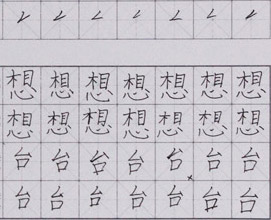 想想想想想想想
想想想想想想想
台台台台台台台
台台台台台台台